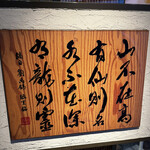 山不在高
有仙则名
水不在深
有龍则靈